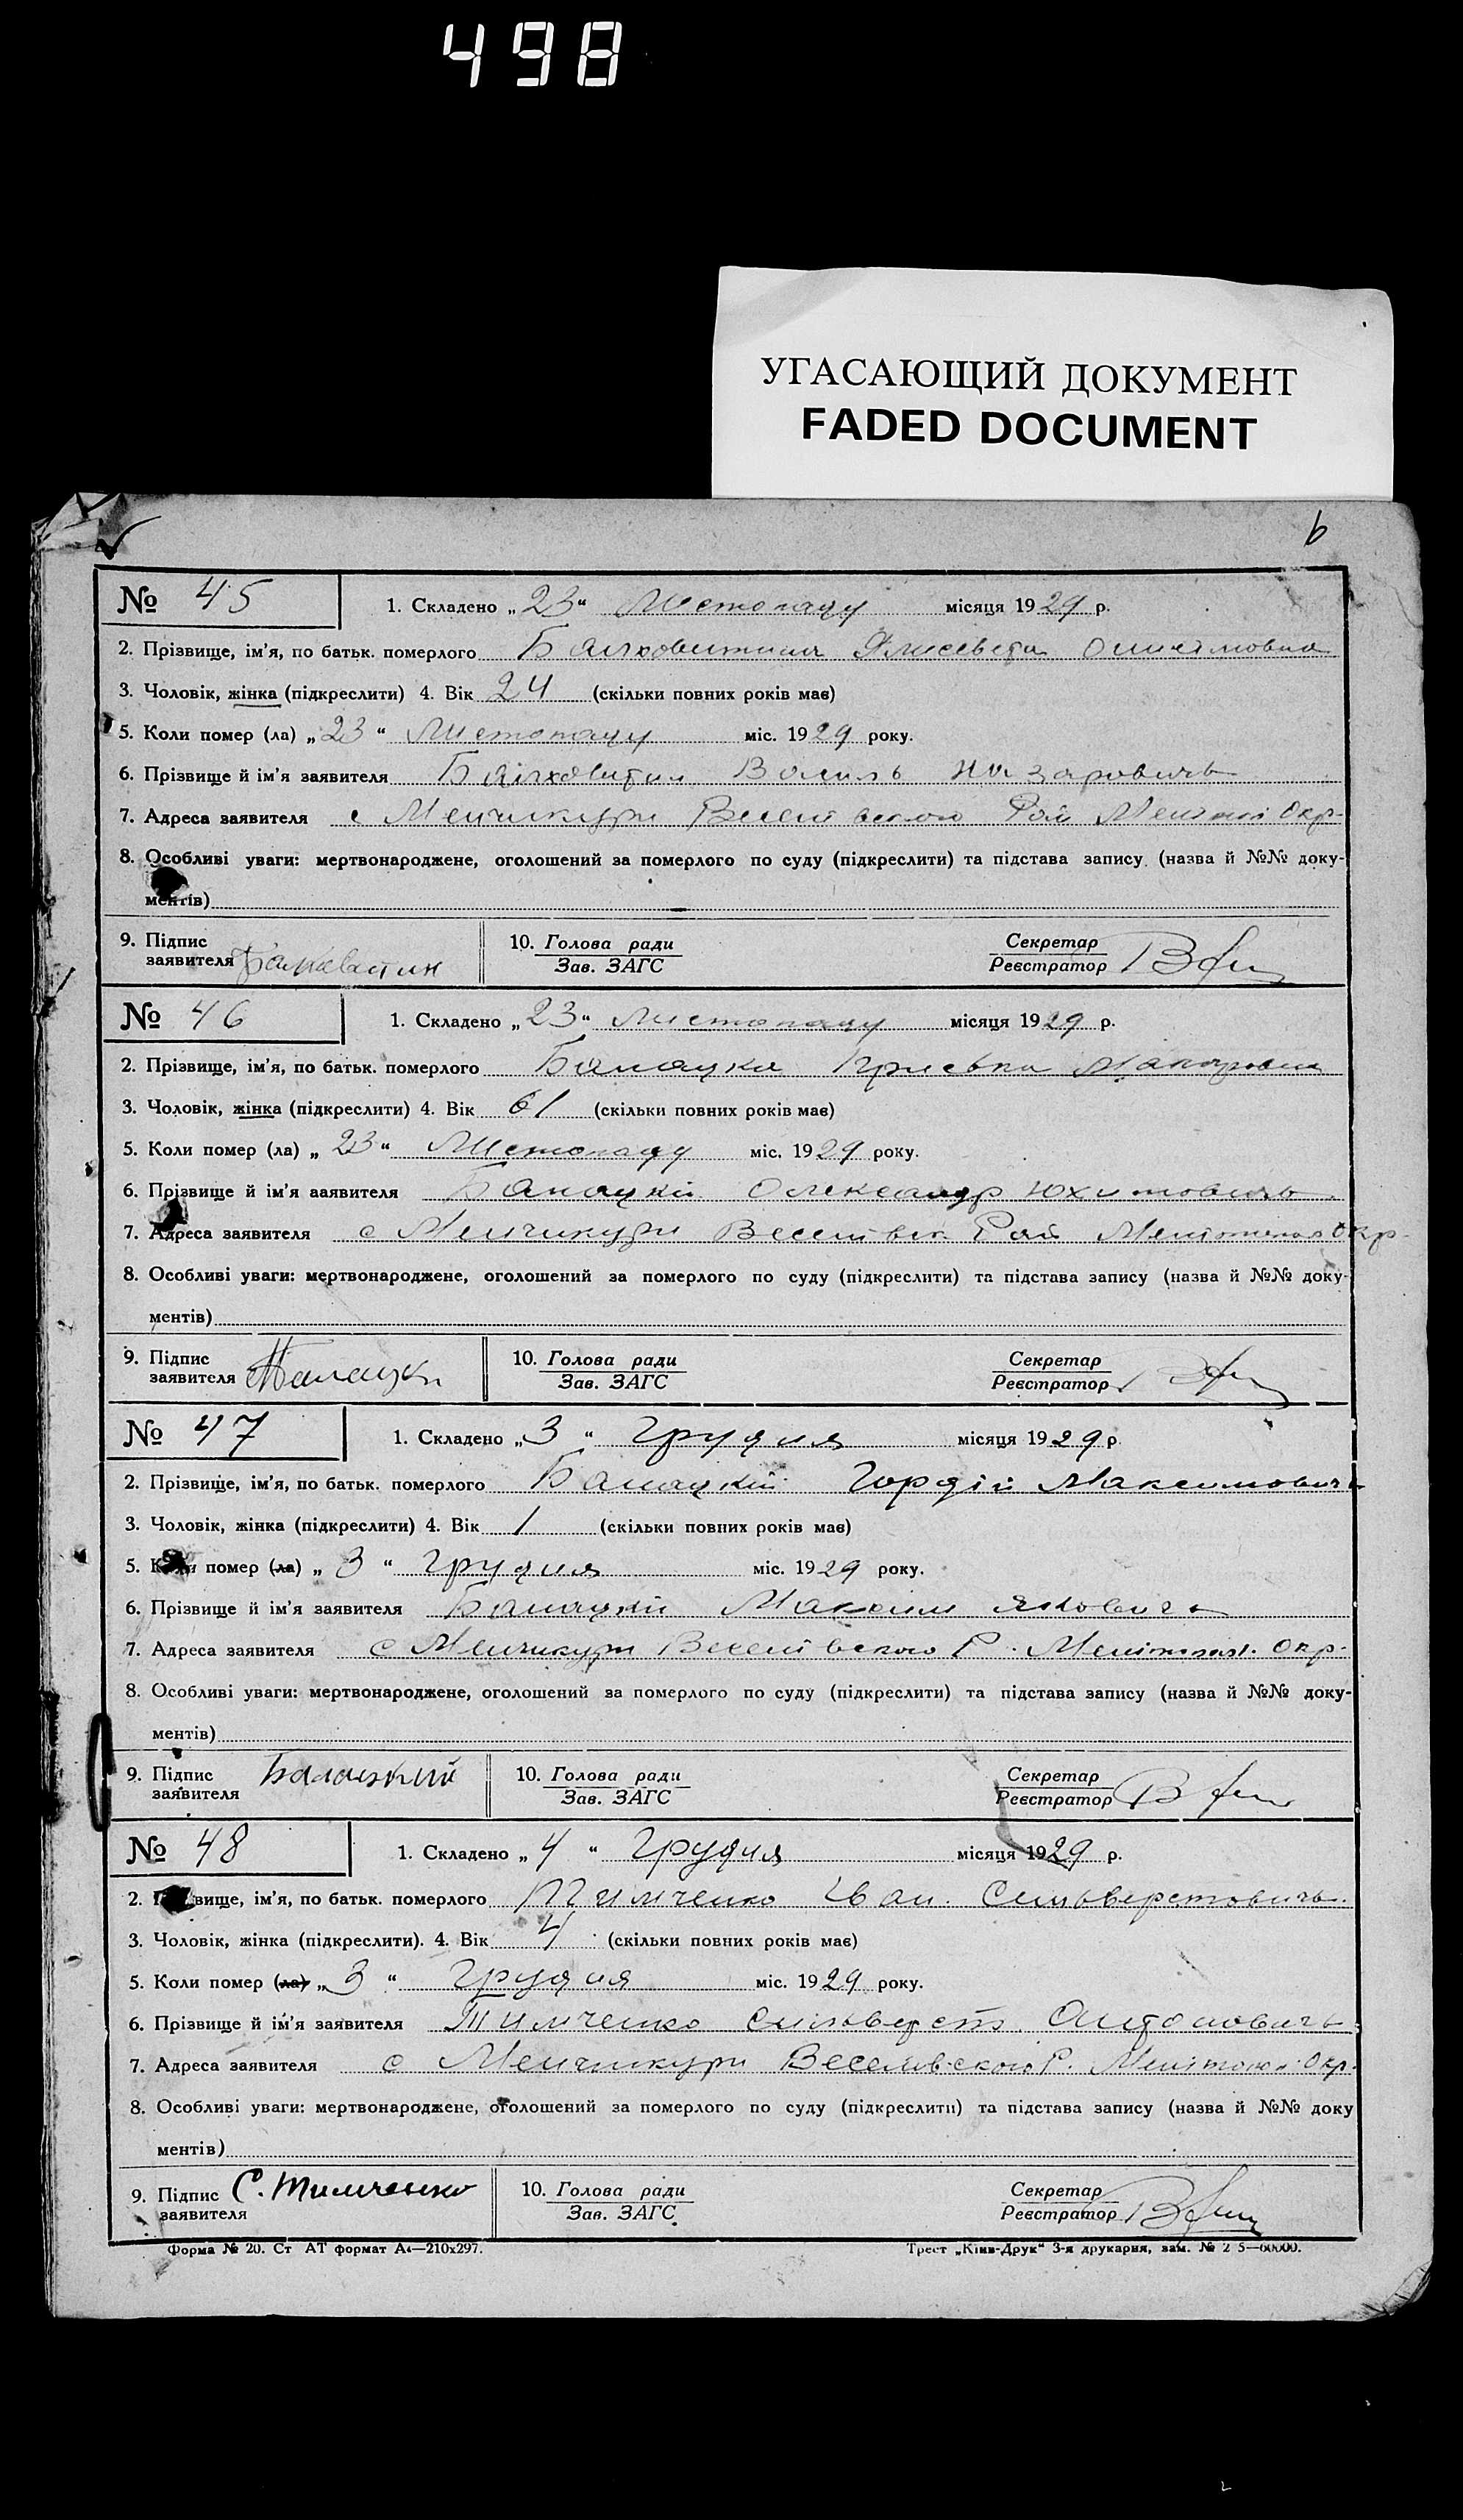 498
УГАСАЮЩИЙ ДОКУМЕНТ
FADED DOCUMENT
6
№ 45 1. Складено „23“ Листопаду місяця 1929 р.
2. Прізвище, ім'я, по батьк. померлого
3. Чоловік, жінка (підкреслити) 4. Вік 24 (скільки повних років має)
5. Коли помер (ла) „23“ Листопаду міс. 1929 року.
6. Прізвище й ім'я заявителя Василь Назаровичь
7. Адреса заявителя с Менчикури Веселівського Рай Меліт Окр.
8. Особливі уваги: мертвонароджене, оголошений за померлого по суду (підкреслити) та підстава запису (назва й №№ доку-
ментів)
9. Підпис 10. Голова ради Секретар
заявителя Зав. ЗАГС Реєстратор
№ 46 1. Складено „23“ Листопаду місяця 1929 р.
2. Прізвище, ім'я, по батьк. померлого Балацка Макаровна
3. Чоловік, жінка (підкреслити) 4. Вік 61 (скільки повних років має)
5. Коли помер (ла) „23“ Листопаду міс. 1929 року.
6. Прізвище й ім'я ааявителя Балацкій Олександр Юхимовичь
7. Адреса заявителя с Менчикури Веселівск Рай Мелітопол Окр.
8. Особливі уваги: мертвонароджене, оголошений за померлого по суду (підкреслити) та підстава запису (назва й №№ доку-
ментів)
9. Підпис 10. Голова ради Секретар
заявителя Зав. ЗАГС Реєстратор
№ 47 1. Складено „3“ Грудня місяця 1929 р.
2. Прізвище, ім'я, по батьк. померлого Балацкій Гордій Максимовичь
3. Чоловік, жінка (підкреслити) 4. Вік 1 (скільки повних років має)
5. Коли помер (ла) „3“ Грудня міс. 1929 року.
6. Прізвище й ім'я заявителя Балацкій Максим Яковичь
7. Адреса заявителя с Менчикури Веселівського Р. Мелітопол. Окр.
8. Особливі уваги: мертвонароджене, оголошений за померлого по суду (підкреслити) та підстава запису (назва й №№ доку-
ментів)
9. Підпис Балацкий 10. Голова ради Секретар
заявителя Зав. ЗАГС Реєстратор
№ 48 1. Складено „4“ Грудня місяця 1929 р.
2. Прізвище, ім'я, по батьк. померлого Тимченко Іван Сельверстовичь
3. Чоловік, жінка (підкреслити). 4. Вік 4 (скільки повних років має)
5. Коли помер (ла) „3“ Грудня міс. 1929 року.
6. Прізвище й ім'я заявителя Тимченко Сильверст Антоновичь
7. Адреса заявителя с Менчикури Веселівського Р. Мелітопол. Окр.
8. Особливі уваги: мертвонароджене, оголошений за померлого по суду (підкреслити) та підстава запису (назва й №№ доку
ментів)
9. Підпис С. Тимченко 10. Голова ради Секретар
заявителя Зав. ЗАГС Реєстратор
Форма № 20. Ст АТ формат А4—210x297. Трест „Київ-Друк“ 3-я друкарня, зам. №